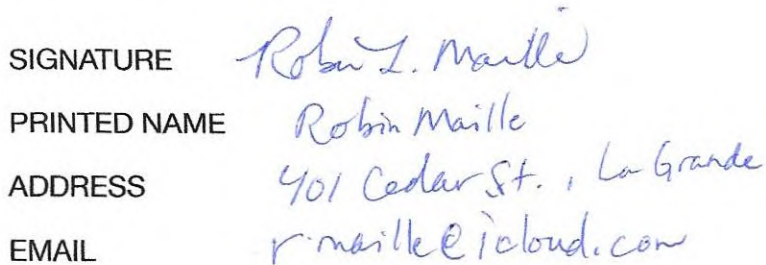 SIGNATURE Robin L. Maille
PRINTED NAME Robin Maille
ADDRESS 401 Cedar St., La Grande
EMAIL r.maille@icloud.com